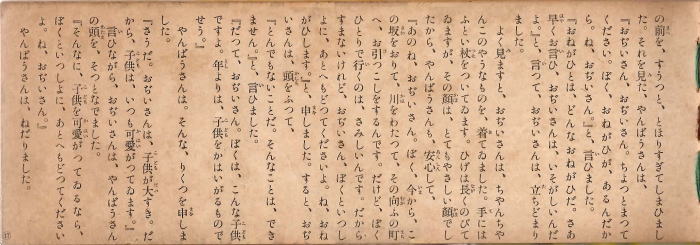 の前を、すうつと、とほりすぎてしまひまし
た。それを見た、やんばうさんは、
『おぢいさん、おぢいさん。ちょつとまつて
ください。ぼく、おねがひが、あるんだか
ら。ね、おぢいさん。』と、言ひました。
『おねがひとは、どんなおねがひだ。さあ
早くお言ひ、おぢいさんは、いそがしいんだ
よ。』と、言つて、おぢいさんは、立ちどまり
ました。
よく見ますと、おぢいさんは、ちやんちや
んこのやうなものを、着てゐました。手には
ふとい杖をついてゐます。ひげは長くのびて
ゐますが、その顔は、とてもやさしい顔でし
たから、やんばうさんも、安心して、
『あのね、おぢいさん。ぼく、今から、こ
の坂をおりて、川をわたつて、その向ふの町
へ、お引つこしをするんです。だけど、ぼく
ひとりで行くのは、さみしいんです。だから
すまないけれど、おぢいさん、ぼくといつし
よに、あとへもどつてくださいよ。ね、おね
がひします。』と、申しました。すると、おぢ
いさんは、頭をふつて、
『とんでもないことだ。そんなことは、でき
ません。』と、言ひました。
『だつて、おぢいさん。ぼくは、こんな子供
ですよ。年よりは、子供をかはいがるもので
せう。』
やんばうさんは、そんな、りくつを申しま
した。
『さうだ。おぢいさんは、子供が大すき。だ
から、子供は、いつも可愛がつてゐます。』
言ひながら、おぢいさんは、やんばうさん
の頭を、そつとなでました。
『そんなに、子供を可愛がつてゐるなら、
ぼくといつしよに、あとへもどつてください
よ。ね、おぢいさん。』
やんばうさんは、ねだりました。